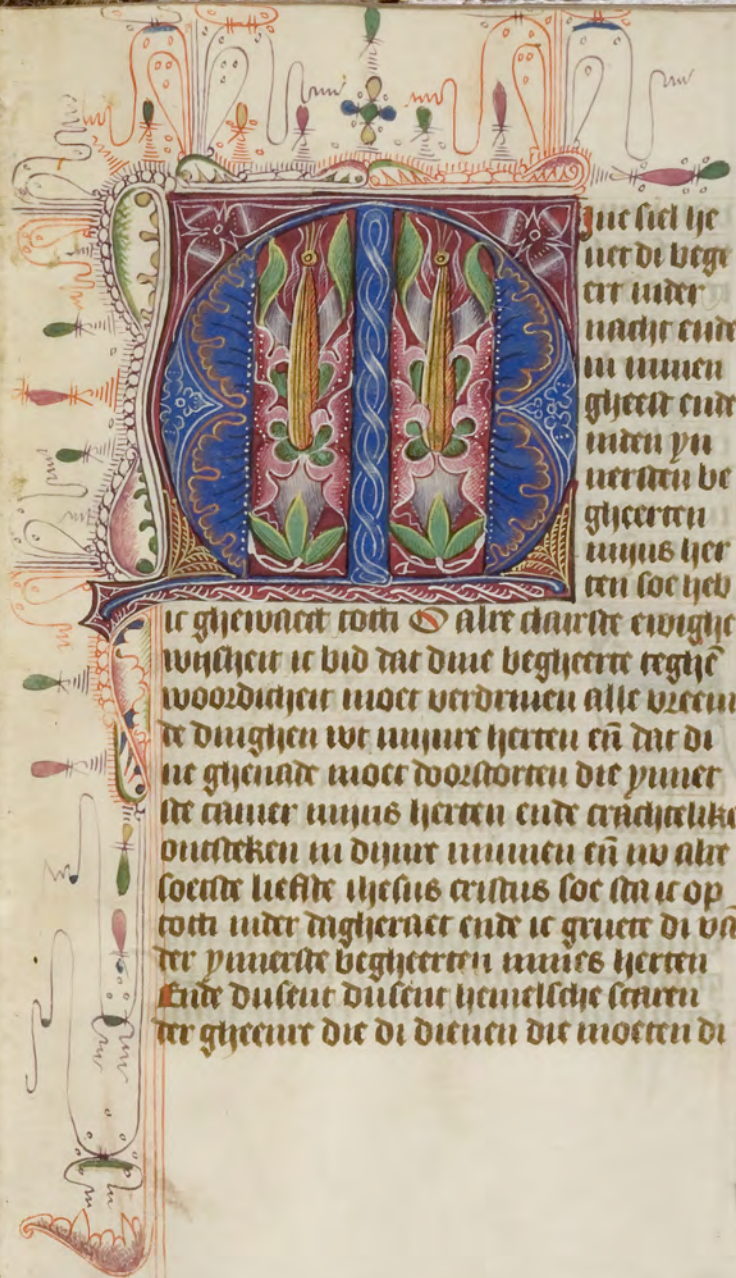 Mine siel he
uet di bege
ert inder
nacht ende
in minen
gheest ende
inden yn
nersten be
gheerten
mijns her
ten soe heb
ic ghewaect totti O alre claerste ewighe
wijsheit ic bid dat dine begheerte teghē
woordicheit moet verdriuen alle vreem
de dinghen wt mijnre herten eñ dat di
ne ghenade moet doorstorten die ynner
ste camer mijns herten ende crachtelike
ontsteken in dijnre minnen eñ nv alre
soetste liefste ihesus cristus soe sta ic op
totti inder dagheraet ende ic gruete di vā
der ynnerste begheerten mines herten
Ende dusent dusent hemelsche scaren
der gheenre die di dienen die moeten di